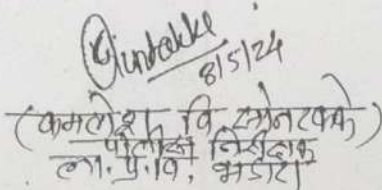 8/5/24
(कमलेश वि. सोनटक्के)
पोलीस निरीक्षक
ला.प्र.वि, भंडारा